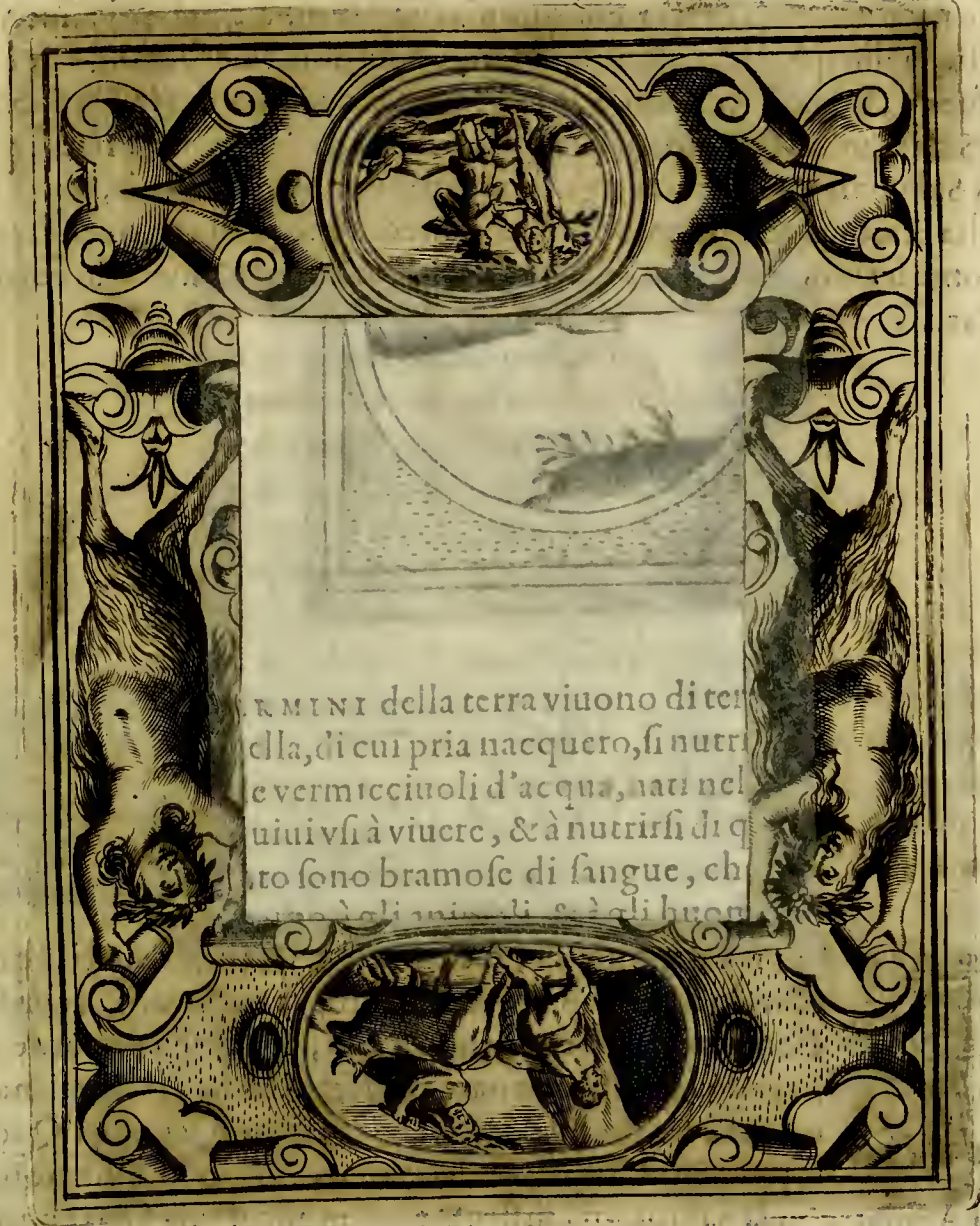 RMINI della terra viuono di ter
ella, di cui pria nacquero, ſi nutri
e vermicciuoli d'acqua, nati nel
uiui vſi à viuere, & à nutrirſi di q
to ſono bramoſe di ſangue, ch
à gli & à gli huom